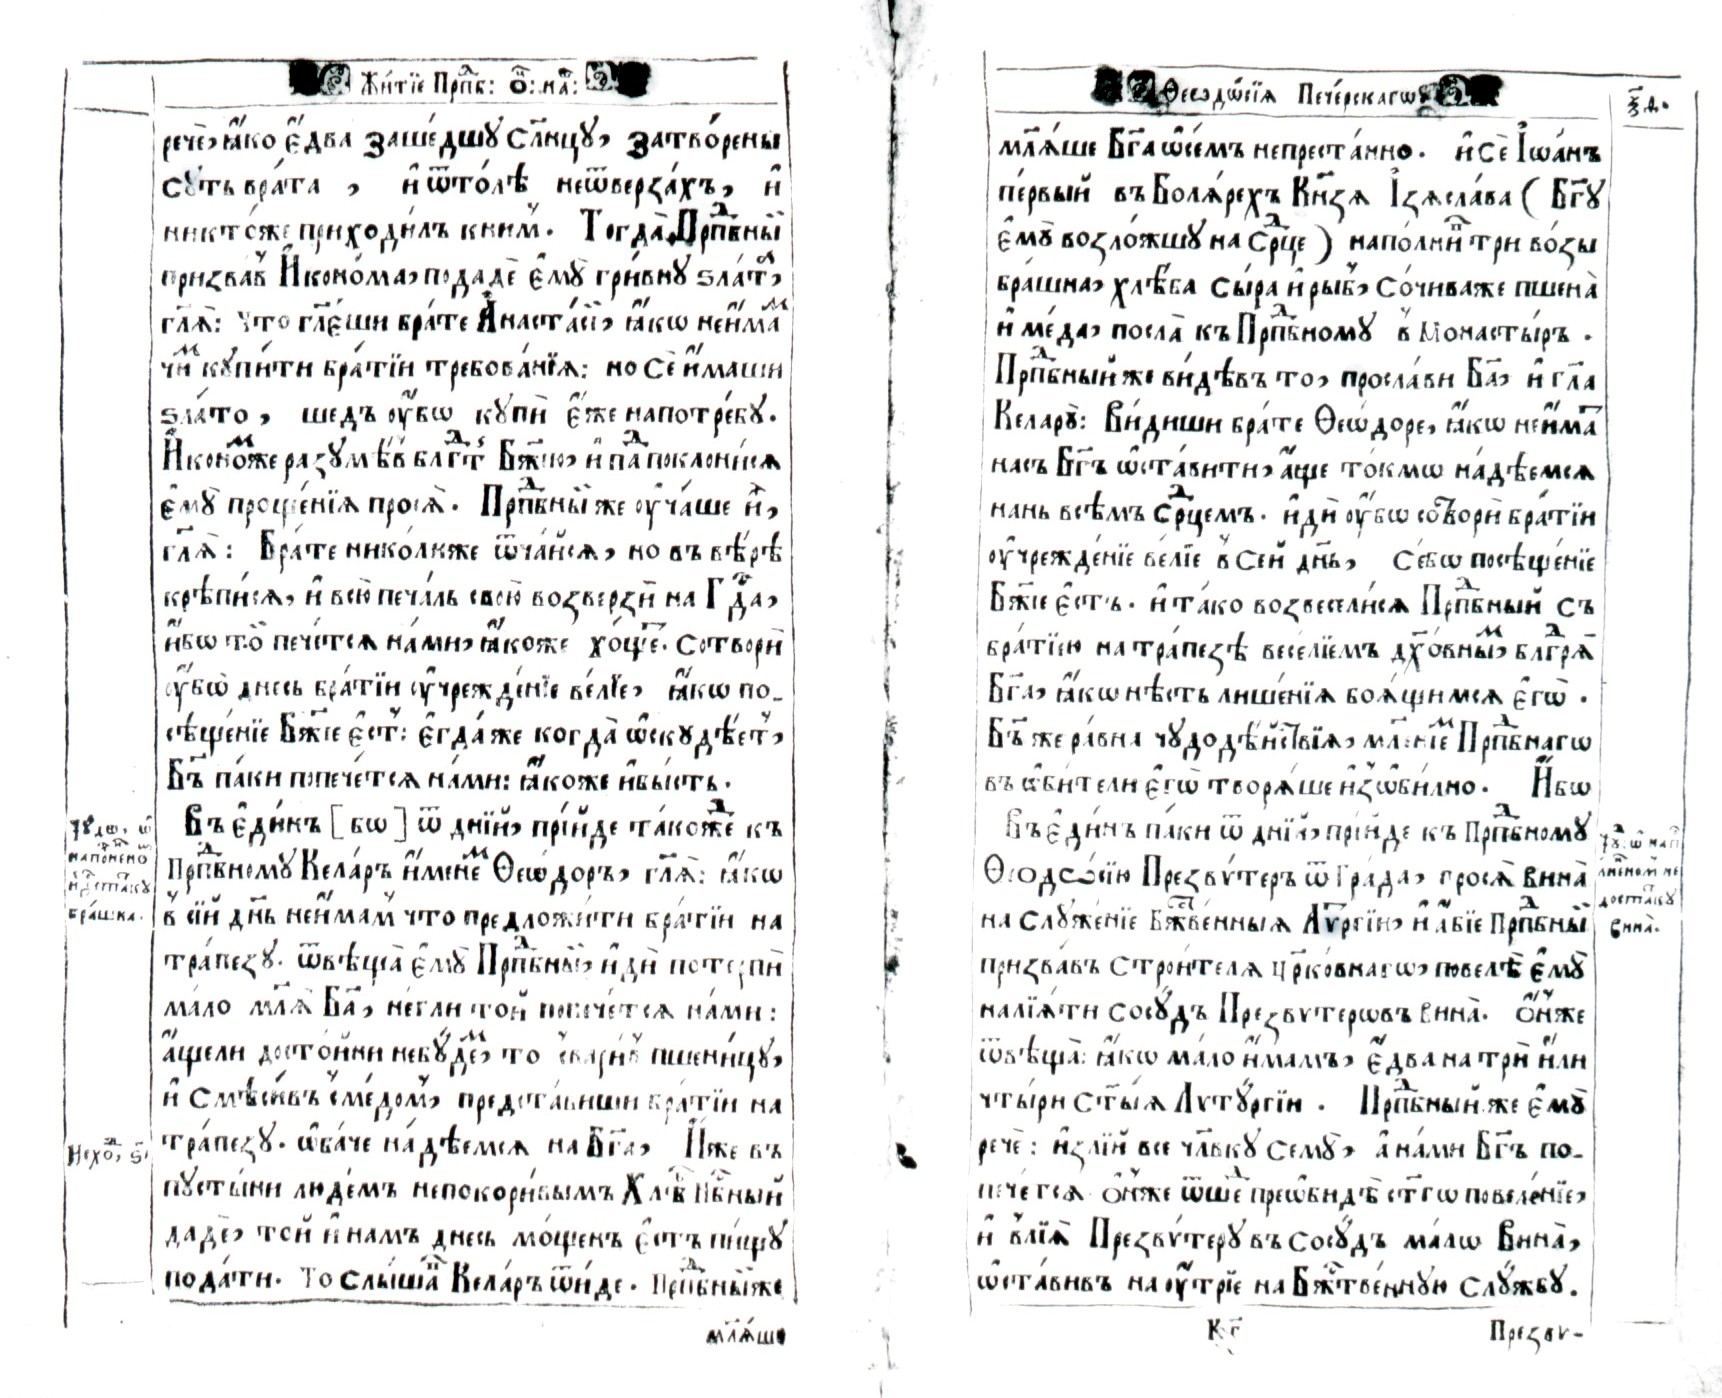 Житїе Прпⷣб: Ѻ҃: на́ш:
рече̑, ꙗ҆́ко є҆два заше́дшу Сл҃нцу, затво́рены
суть врата , и҆ ѿто́лѣ неѿверза́хъ, и҆
никто́же приходи́лъ кним̾. Тогда̀ Прпⷣбный
призвав̾ И҆коно́ма, подаде̑ є҆мꙋ̀ гри́вну ѕла́т,
гл҃ѧ̀: что гл҃е́ши бра́те А҆наста́сїе, ꙗ҆́кѡ неи҆́маⷨ
чиⷨ купи́ти бра́тїи тре́бованїѧ: но се̑ и҆́маши
ѕла́то, шедъ ᲂу҆́бѡ купѝ є҆́же напотре́бу.
И҆коноⷨже разумѣ́в̾ блгⷣт̾ Бж҃їю, и҆ паⷣ поклони́сѧ
є҆мꙋ̀ проще́нїѧ просѧ̀. Прпⷣбный же ᲂу҆ча́ше и҆̀,
гл҃ѧ̀: Бра́те нико́лиже ѿча́йсѧ, но въ вѣ́рѣ
крѣпи́сѧ, и҆ всю̀ печа́ль свою̀ возверзѝ на Гдⷭ҇а,
и҆́бѡ то́й пече́тсѧ на́ми, ꙗ҆́коже хо́щет. Сотворѝ
ᲂу҆́бѡ днесь бра́тїи ᲂу҆чрежде́нїе ве́лїе, ꙗ҆́кѡ по-
сѣще́нїе Бж҃їе є҆ст̾: є҆гда́же когда̀ ѡ҆скудѣ́ет̾,
Бг҃ъ па́ки попече́тсѧ на́ми: ꙗ҆́коже и҆бы́сть.
Въ є҆ди́нъ [бѡ] ѿ дні́й, прїи́де та́коⷤже къ
Прпⷣбному Кела́рь и҆́менеⷨ Ѳео́доръ, гл҃ѧ̀: ꙗ҆́кѡ
в̾ сїй дн҃ь неи҆́мам̾ что предложи́ти бра́тїи на
трапе́зу. ѿвѣща̀ є҆мꙋ̀ Прпⷣбный, и҆дѝ потерпѝ
ма́ло мл҃ѧ̀ Бг҃а, не́гли той попече́тсѧ на́ми:
а҆́щели досто́йни небу́деⷨ, то свари́в̾ пшени́цу,
и҆ смѣси́въ с̾ме́дом̾, предста́виши бра́тїи на
трапе́зу. ѻ҆ба́че надѣ́емсѧ на Бг҃а, И҆́же въ
пусты́ни лю́демъ непокори́вымъ Хлѣ́б Нбⷭ҇ный
даде̑, той и҆ нам̾ днесь мо́щенъ є҆́сть пи́щу
пода́ти. То слы́шаⷡ Кела́рь ѿи́де. Прпⷣбный же
мл҃ѧ́ше
Чу́дѡ, ѡ҆
наполнено
недоста́ку
бра́шна.
Исхоⷣ, ѕ҃і
Ѳеодо́сїѧ Пече́рскагѡ
ѯ҃д.
мл҃ѧ́ше Бг҃а ѡ҆се́мъ непреста́нно. и҆ се̑ І҆ѡа́нъ
пе́рвый въ Болѧ́рехъ Кн҃зѧ І҆зѧсла́ва ( Бг҃у
є҆мꙋ̀ возло́жшу на Срⷣце ) напо́лниⷡ три во́зы
бра́шна, хлѣ́ба сы́ра и҆ ры́б̾, Со́чиваже пшена̀
и҆ ме́да, посла̀ къ Прпⷣбному в̾ Монасты́рь .
Прпⷣбный же ви́дѣвъ то, просла́ви Бг҃а, и҆ гл҃а
Келарꙋ̀: Ви́диши бра́те Ѳео́доре, ꙗ҆́кѡ неи҆́мат
насъ Бг҃ъ ѡ҆ста́вити, а҆́ще то́кмѡ надѣ́емсѧ
нань всѣ́мъ Срⷣцемъ. и҆дѝ ᲂу҆́бѡ сотворѝ бра́тїи
ᲂу҆чрежде́нїе ве́лїе в̾ се́й дн҃ь, Се́бѡ посѣще́нїе
Бж҃їе є҆́сть. и҆ та́ко возвесели́сѧ Прпⷣбный съ
бра́тїею на трапе́зѣ весе́лїемъ дх҃о́вныⷨ, блгⷣрѧ
Бг҃а, ꙗ҆́кѡ нѣ́сть лише́нїѧ боѧ́щимсѧ є҆гѡ̀ .
Бг҃ъ же ра́вна чудодѣ́йствїѧ, мл҃е́нїеⷨ Прпⷣбнагѡ
въ ѡ҆би́тели є҆гѡ̀ творѧ́ше и҆зѡби́лно. И҆́бѡ
Въ є҆ди́нъ па́ки ѿ дні́й, прїи́де къ Прпⷣбному
Ѳеодо́сїю Презвѵ́теръ ѿ Гра́да, просѧ̀ вина̀
на служе́нїе Бжⷭ҇ве́нныѧ Лѵргі́и, и҆ а́бїе Прпⷣбный
призва́въ Строи́телѧ цр҃ко́внагѡ, повелѣ̀ є҆мꙋ̀
налїѧ́ти сосу́дъ Презвѵ́теровъ вина̀. Ѻ҆́нже
ѿвѣща̀: ꙗ҆́кѡ ма́ло и҆́мамъ, є҆два на трѝ и҆лѝ
чты́ри Ст҃ы́ѧ Лѵтꙋргі́и . Прпⷣбный же є҆мꙋ̀
рече̑: и҆злі́й все чл҃вку семꙋ̀, а҆ на́ми Бг҃ъ по-
пече́тсѧ. Ѻ҆́нже ѿше́д преѡби́дѣ ст҃гѡ повелѣ́нїе,
и҆ влїѧ̀ Презвѵ́теру въ сосу́дъ ма́лѡ Вина̀,
ѡ҆ста́вивъ на ᲂу҆́трїе на Бжⷭ҇тве́нную Слу́жбу.
Чу́ⷣ. ѡ҆ нап
лненом не
достаⷮку
вина̀.
Кг҃
Презвѵ-